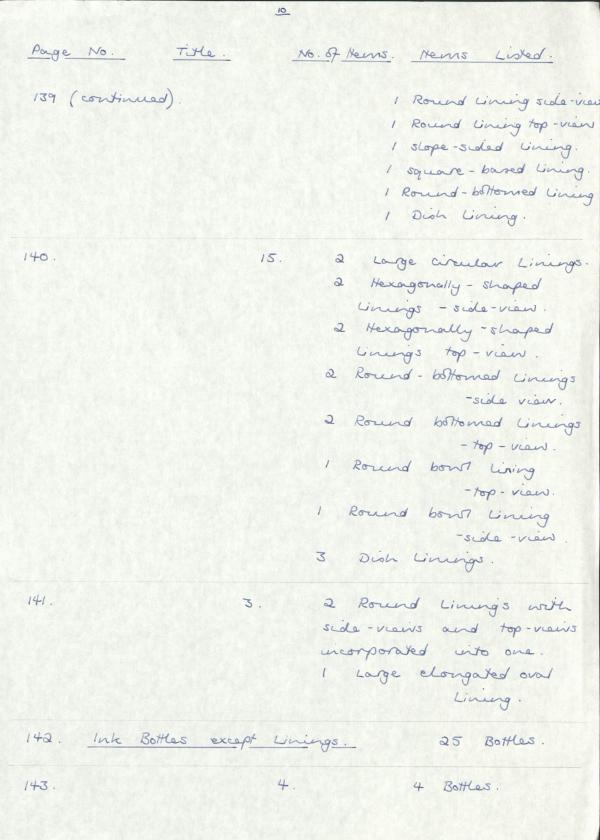 10
Page No. Title. No. of Items. Items Listed.
139 (continued). 1 Round Lining side-view
1 Round Lining top-view
1 slope-sided Lining.
1 square-based Lining.
1 Round-bottomed Lining
1 Dish Lining.
140. 15. 2 Large circular Linings.
2 Hexagonally-shaped
Linings - side-view.
2 Hexagonally-shaped
Linings top-view.
2 Round-bottomed Linings
-side view.
2 Round bottomed Linings
-top-view.
1 Round bowl Lining
-top-view.
1 Round bowl Lining
-side-view.
3 Dish Linings.
141. 3. 2 Round Linings with
side-views and top-views
incorporated into one.
1 Large elongated oval
Lining.
142. Ink Bottles except Linings. 25 Bottles.
143. 4. 4 Bottles.